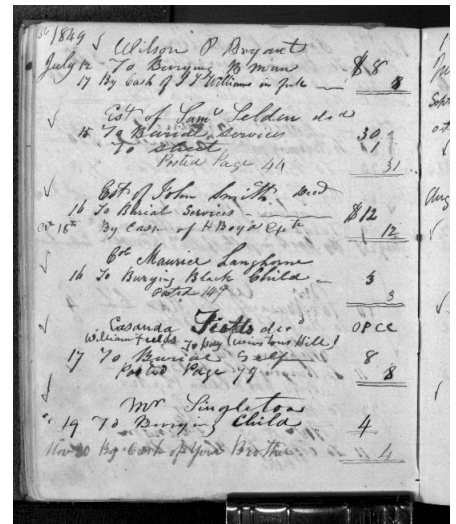 1849 Wilson P Bryant
July 12 To Burying B man $8
17 By Cash of Williams in full 8
Est of Saml Selden decd
15 To Burial Services 30
To street 1
Posted Page 44 31
Est of John Smith Decd
16 To Burial Services $12
Oct 18th By Cash of H Boyd 12
Col Maurice Langhorne
16 To Burying Black Child 3
Posted 149 3
Casanda Fields decd OPCC
William Fields To pay (Winstons Hill)
17 To Burial Self 8
Posted Page 79 8
Mr Singleton
19 To Burying Child 4
Nov 20 By Cash of Your Brother 4